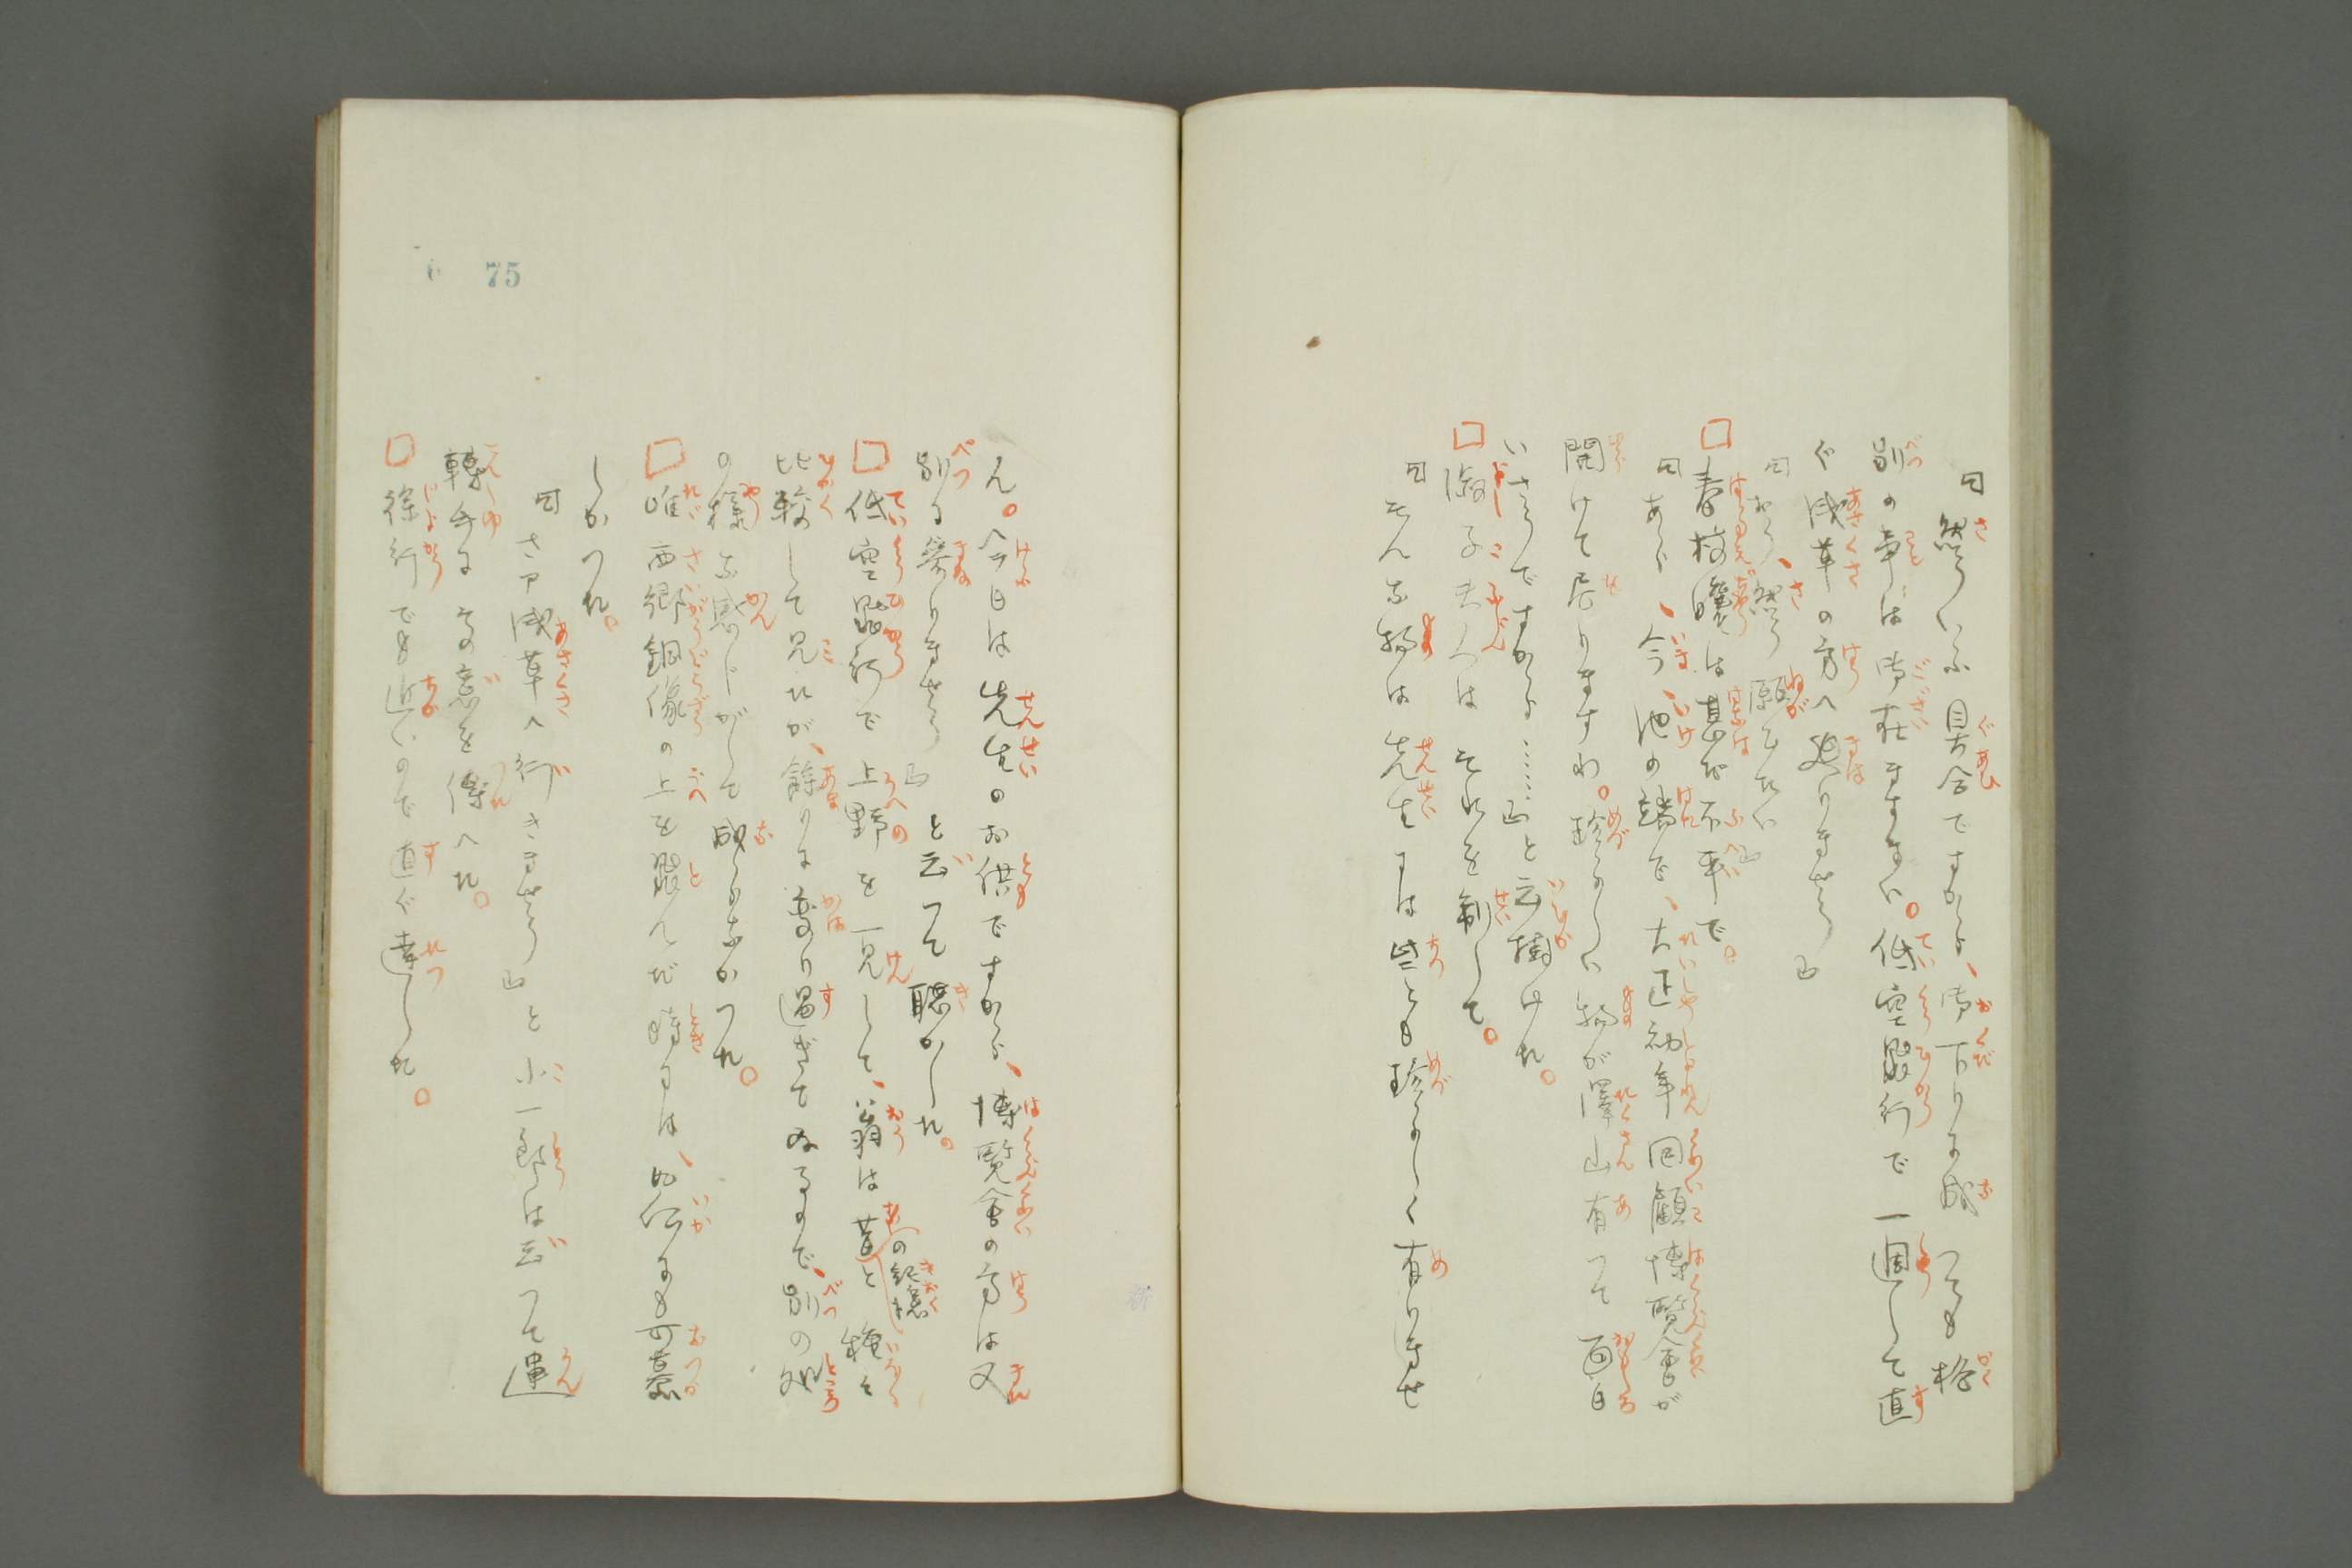 「然ういふ具合ですから、御下りに成つても格
別の事は御在ますまい。低空飛行で一週して直
ぐ浅草の方へ廻りませう」
「おう、然う願ひたい」
□春椏孃は甚だ不平で。
「あら、今、池の端で、大正初年回顧博覧会が
開けて居りますわ。珍らしい物が澤山有つて面白
いさうですから……」と云掛けた。
□淑子夫人はそれを制して。
「そんな物は先生には些とも珍らしく有りませ
ん。今日は先生のお供ですから、博覧会の方は又
別に参りませう」と云つて聴かした。
□低空飛行で上野を一見して、翁は昔の記憶と種々
比較して見たが、餘りに変り過ぎてゐるので、別の処
の様な感じがして成らなかつた。
□唯西郷銅像の上を飛んだ時には、如何にも可慕
しかつた。
「さア浅草へ行きませう」と小一郎は云つて運
轉手にその意を傳へた。
□徐行でも近いので直ぐ達した。
75